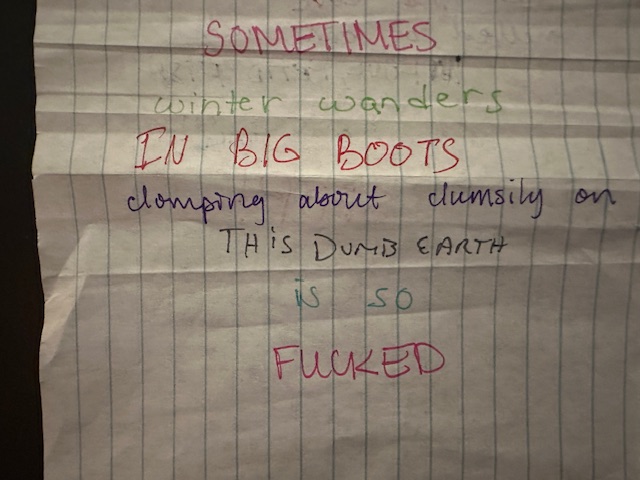 SOMETIMES
winter wanders
IN BIG BOOTS
clomping about clumsily on
THiS DUMB EARTH
is so
FUCKED